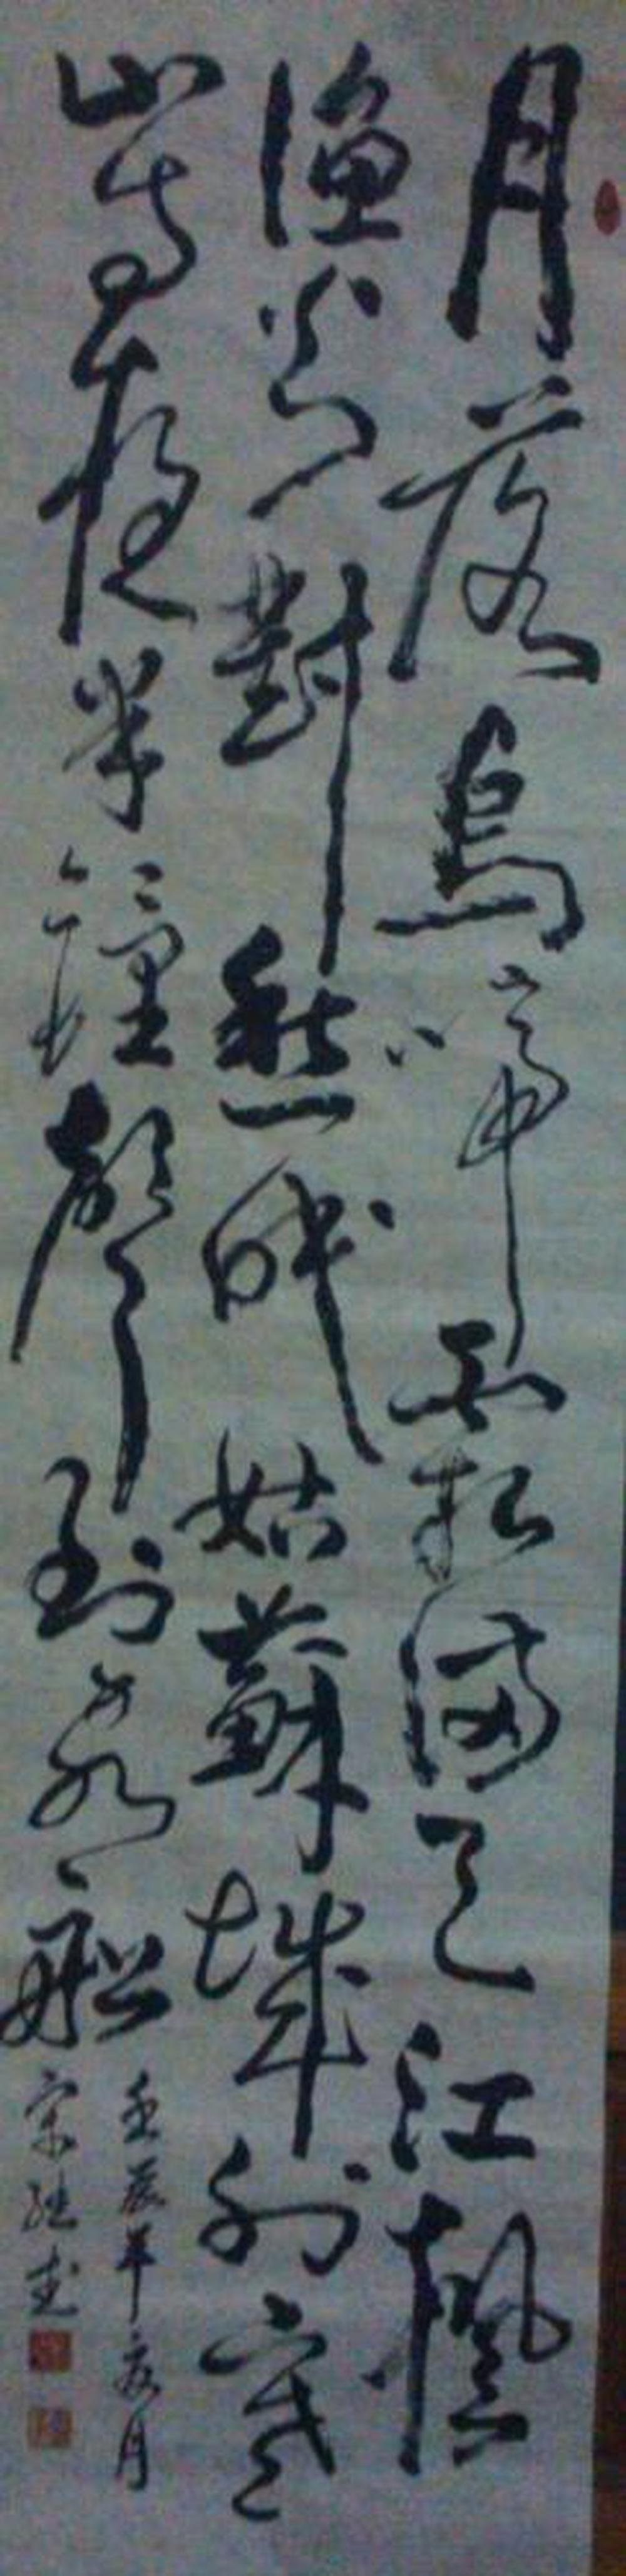 月落烏啼霜滿天江楓
漁火對愁眠姑蘇城外寒
山寺夜半鐘聲到客船
壬辰年亥月
宋